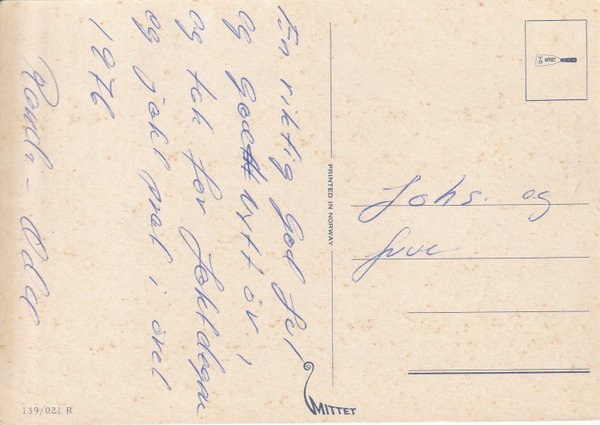 En riktig God Jul
og Godt nytt år,
og tak for
og prat i året
1976
Randi - Odd
Johs. og
frue
PRINTED IN NORWAY
MITTET
139/021 R